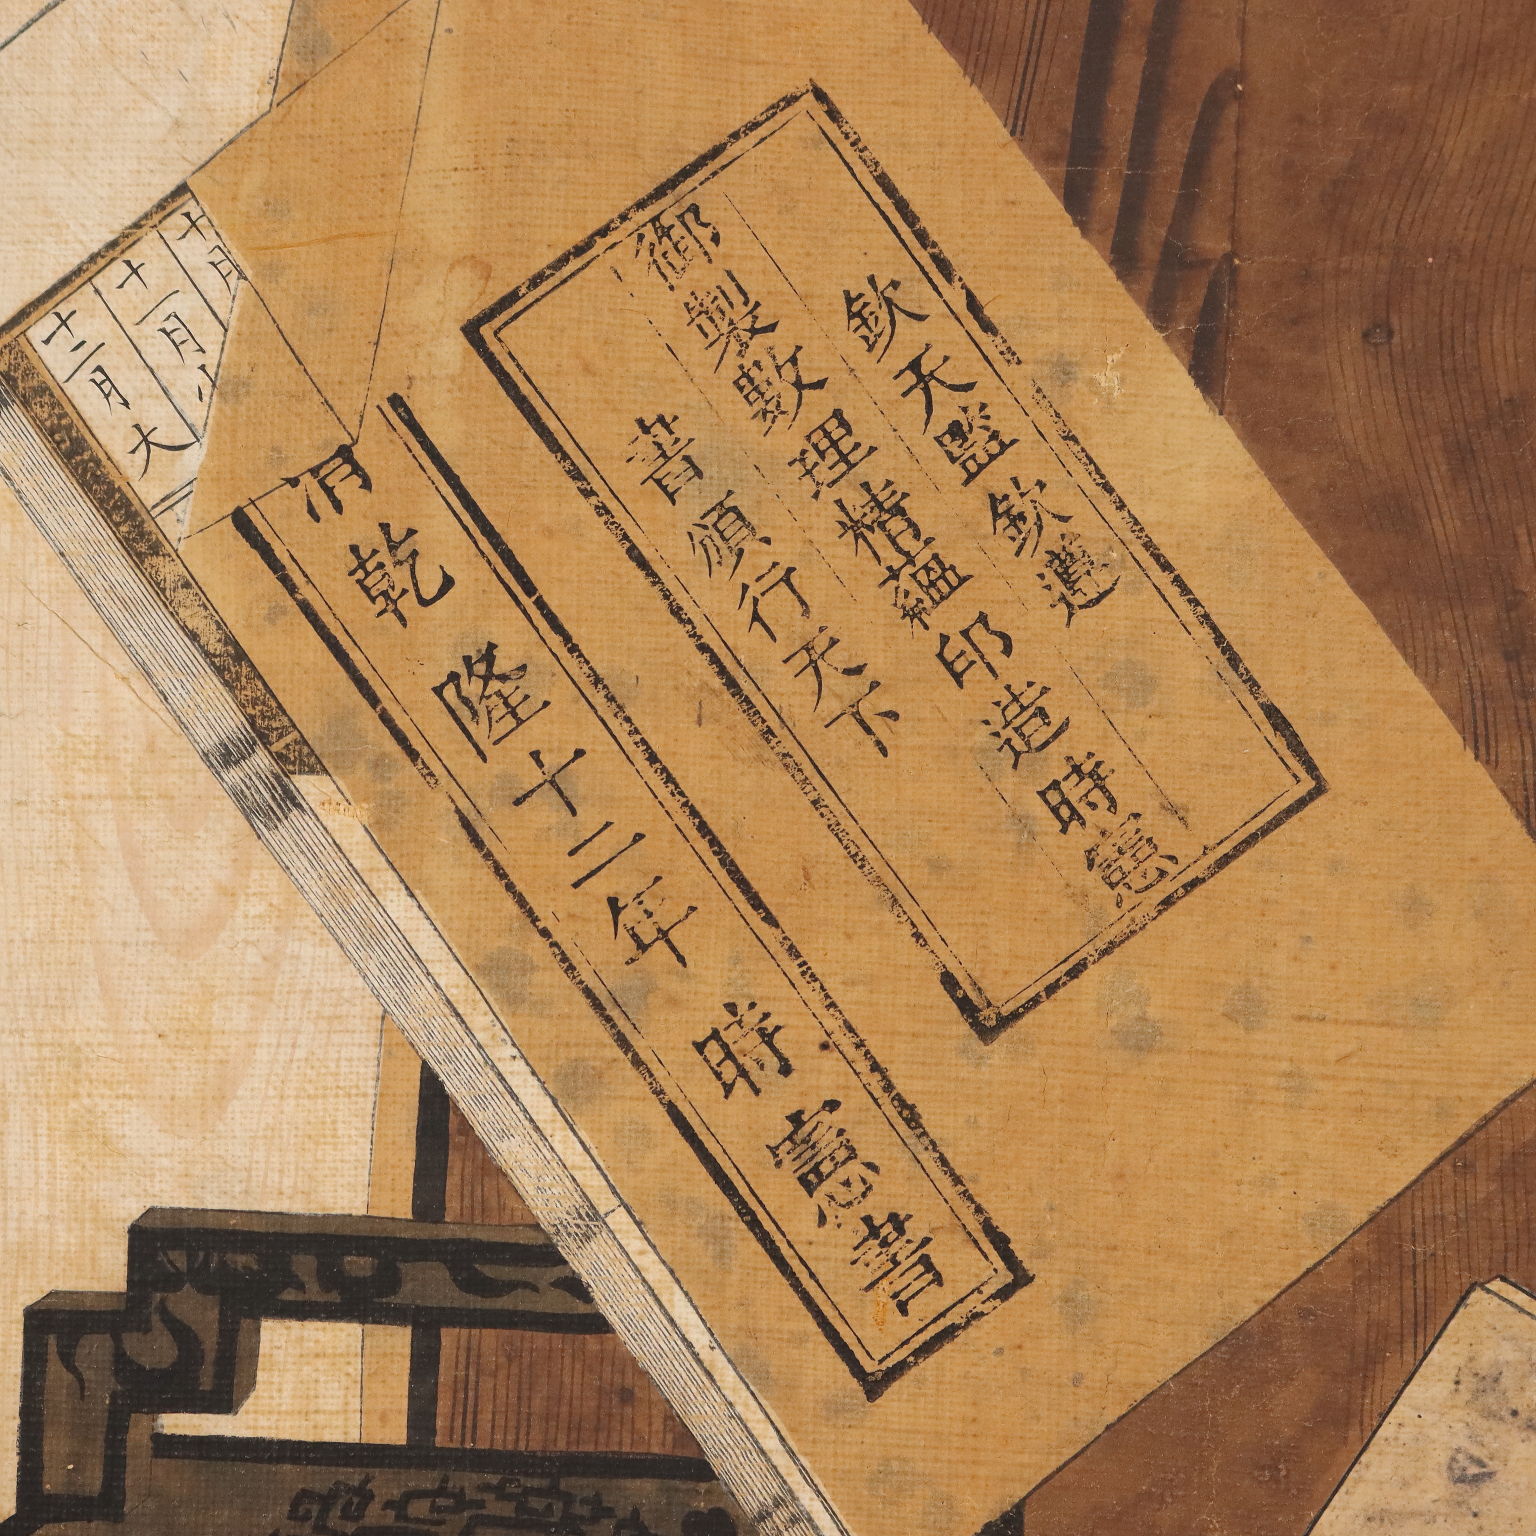 欽天監欽遵
御製數理精蘊印造時憲
書頒行天下
清乾隆十二年時憲書
十月
十一月小
十二月大